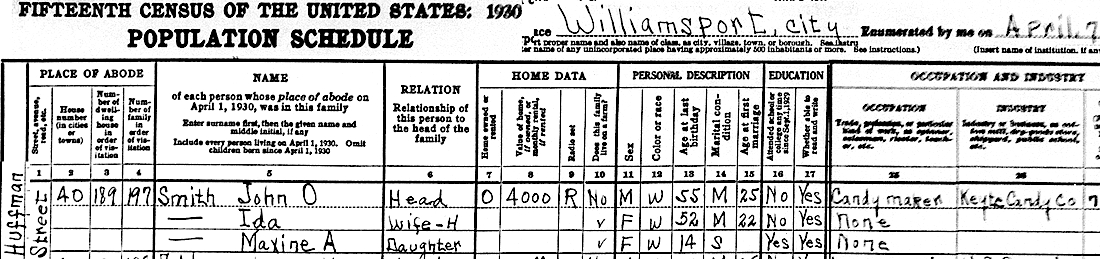 FIFTEENTH CENSUS OF THE UNITED STATES: 1930
POPULATION SCHEDULE
Williamsport, city
Enumerated by me on April 7
proper name and also name of class, as city, village, town, or borough. See
name of any unincorporated place having approximately 500 inhabitants or more. See instructions.)
(Insert name of institution, if any
PLACE OF ABODE
NAME
of each person whose place of abode on April 1, 1930, was in this family
Enter surname first, then the given name and middle initial, if any
Include every person living on April 1, 1930. Omit children born since April 1, 1930
RELATION
Relationship of this person to the head of the family
HOME DATA
PERSONAL DESCRIPTION
EDUCATION
OCCUPATION AND INDUSTRY
Street, avenue, road, etc.
House number (in cities or towns)
Number of dwelling house in order of visitation
Number of family in order of visitation
Home owned or rented
Value of home, if owned, or monthly rental, if rented
Radio set
Does this family live on a farm?
Sex
Color or race
Age at last birthday
Marital condition
Age at first marriage
Attended school or college any time since Sept. 1, 1929
Whether able to read and write
OCCUPATION
Trade, profession, or particular kind of work, as spinner, salesman, riveter, teacher, etc.
INDUSTRY
Industry or business, as cotton mill, dry-goods store, shipyard, public school,
1 2 3 4 5 6 7 8 9 10 11 12 13 14 15 16 17 25 26
Huffman Street
40 189 197 Smith John O Head O 4000 R No M W 55 M 25 No Yes Candy maker Keyte Candy Co 7
— Ida Wife-H v F W 52 M 22 No Yes None
— Maxine A Daughter v F W 14 S Yes Yes None